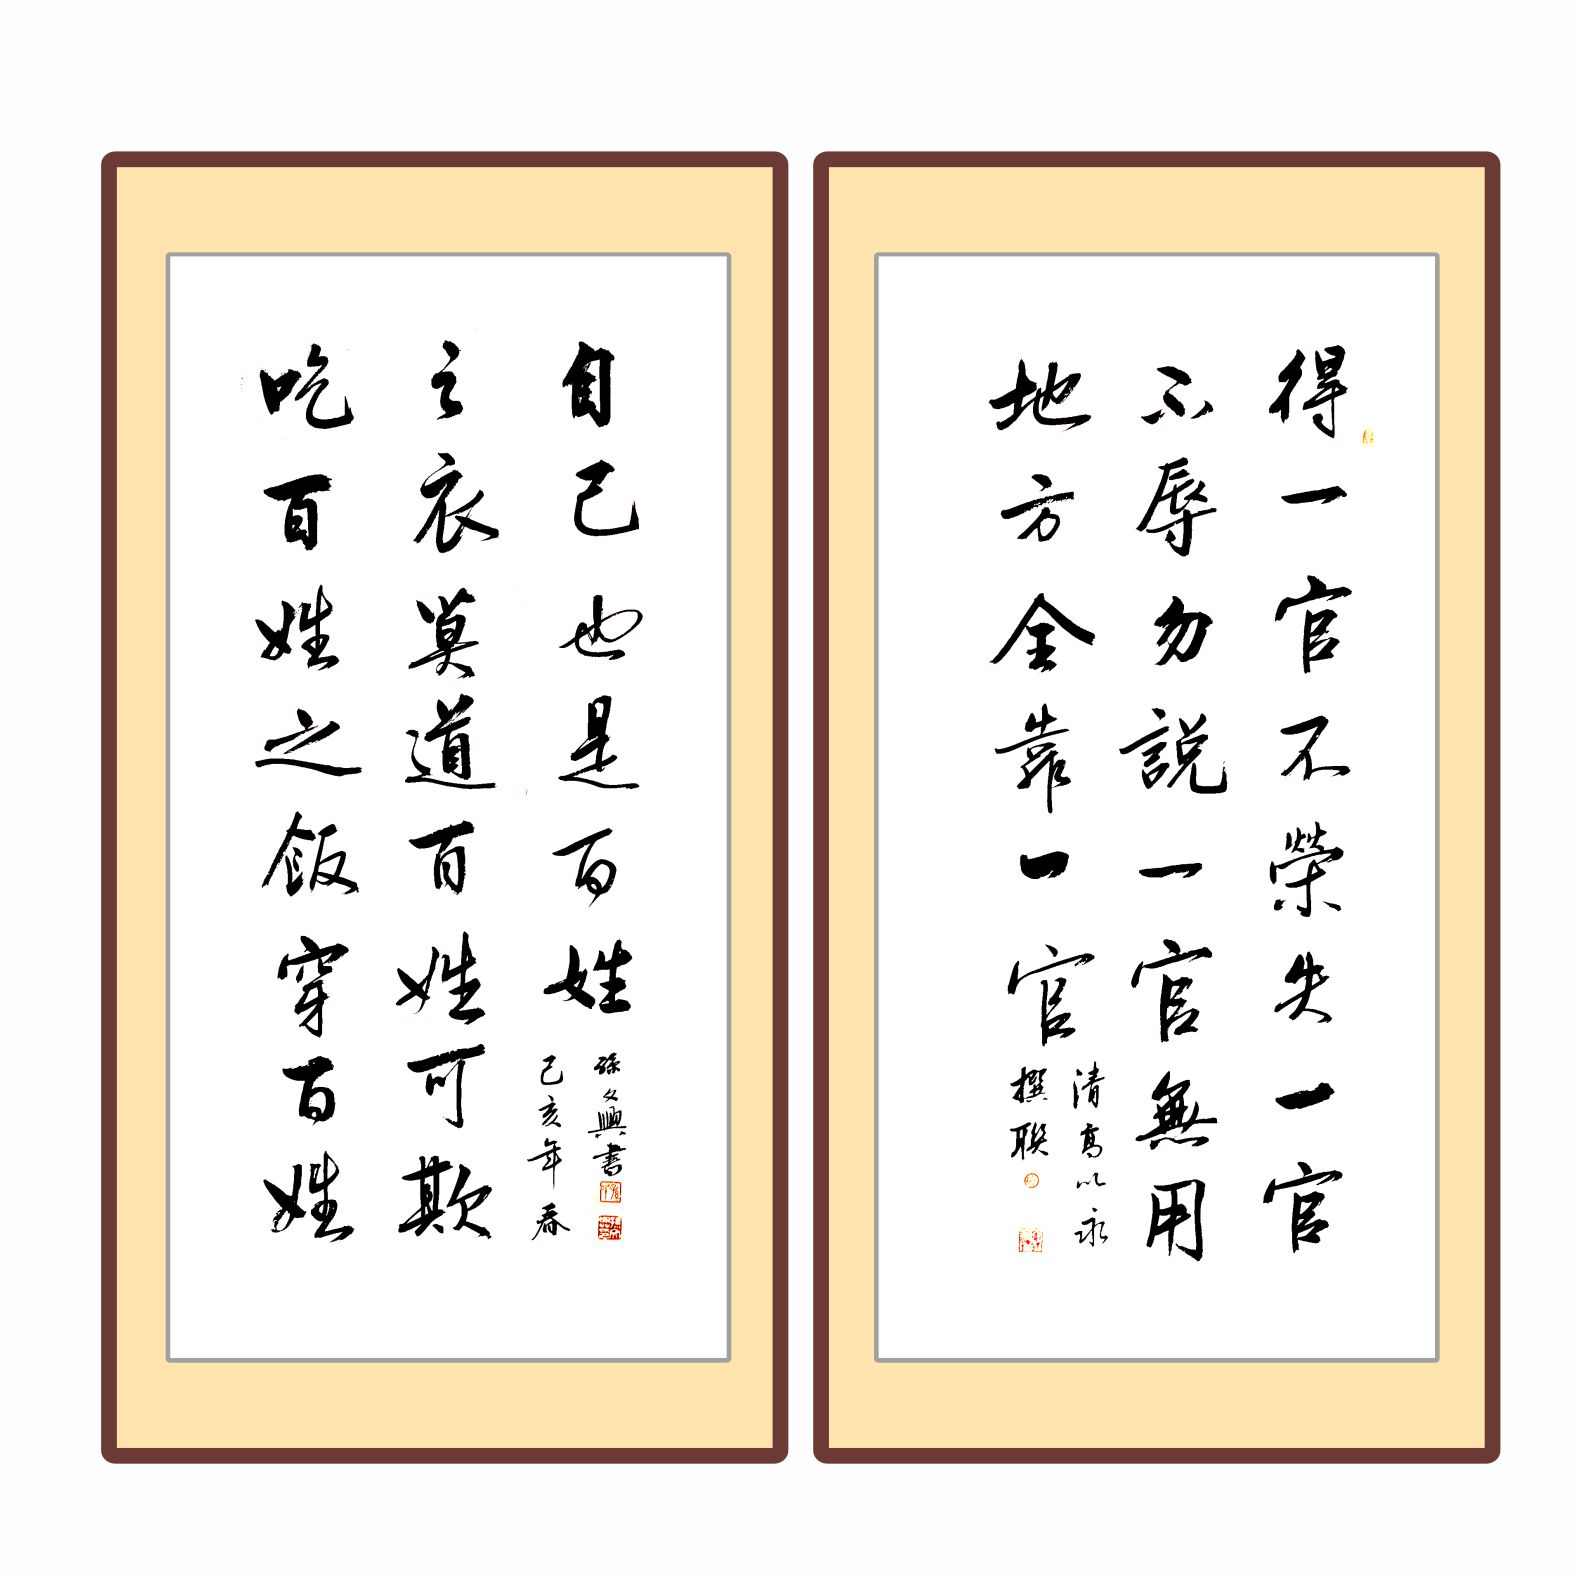 得一官不榮失一官
不辱勿說一官無用
地方全靠一官
清高以永
撰聯
吃百姓之飯穿百姓
之衣莫道百姓可欺
自己也是百姓
己亥年春
孫文興書